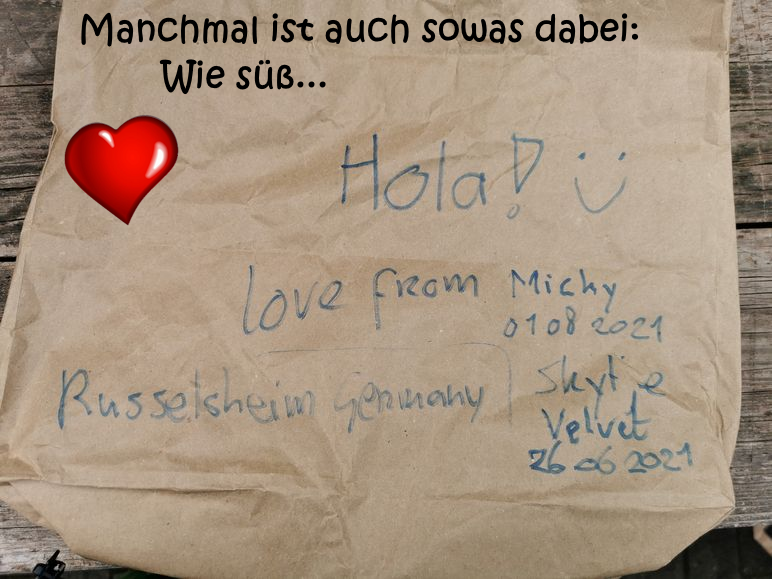 Manchmal ist auch sowas dabei:
Wie süß...
Hola! :)
love from Micky
01 08 2021
Russelsheim Germany
Velvet
26 06 2021